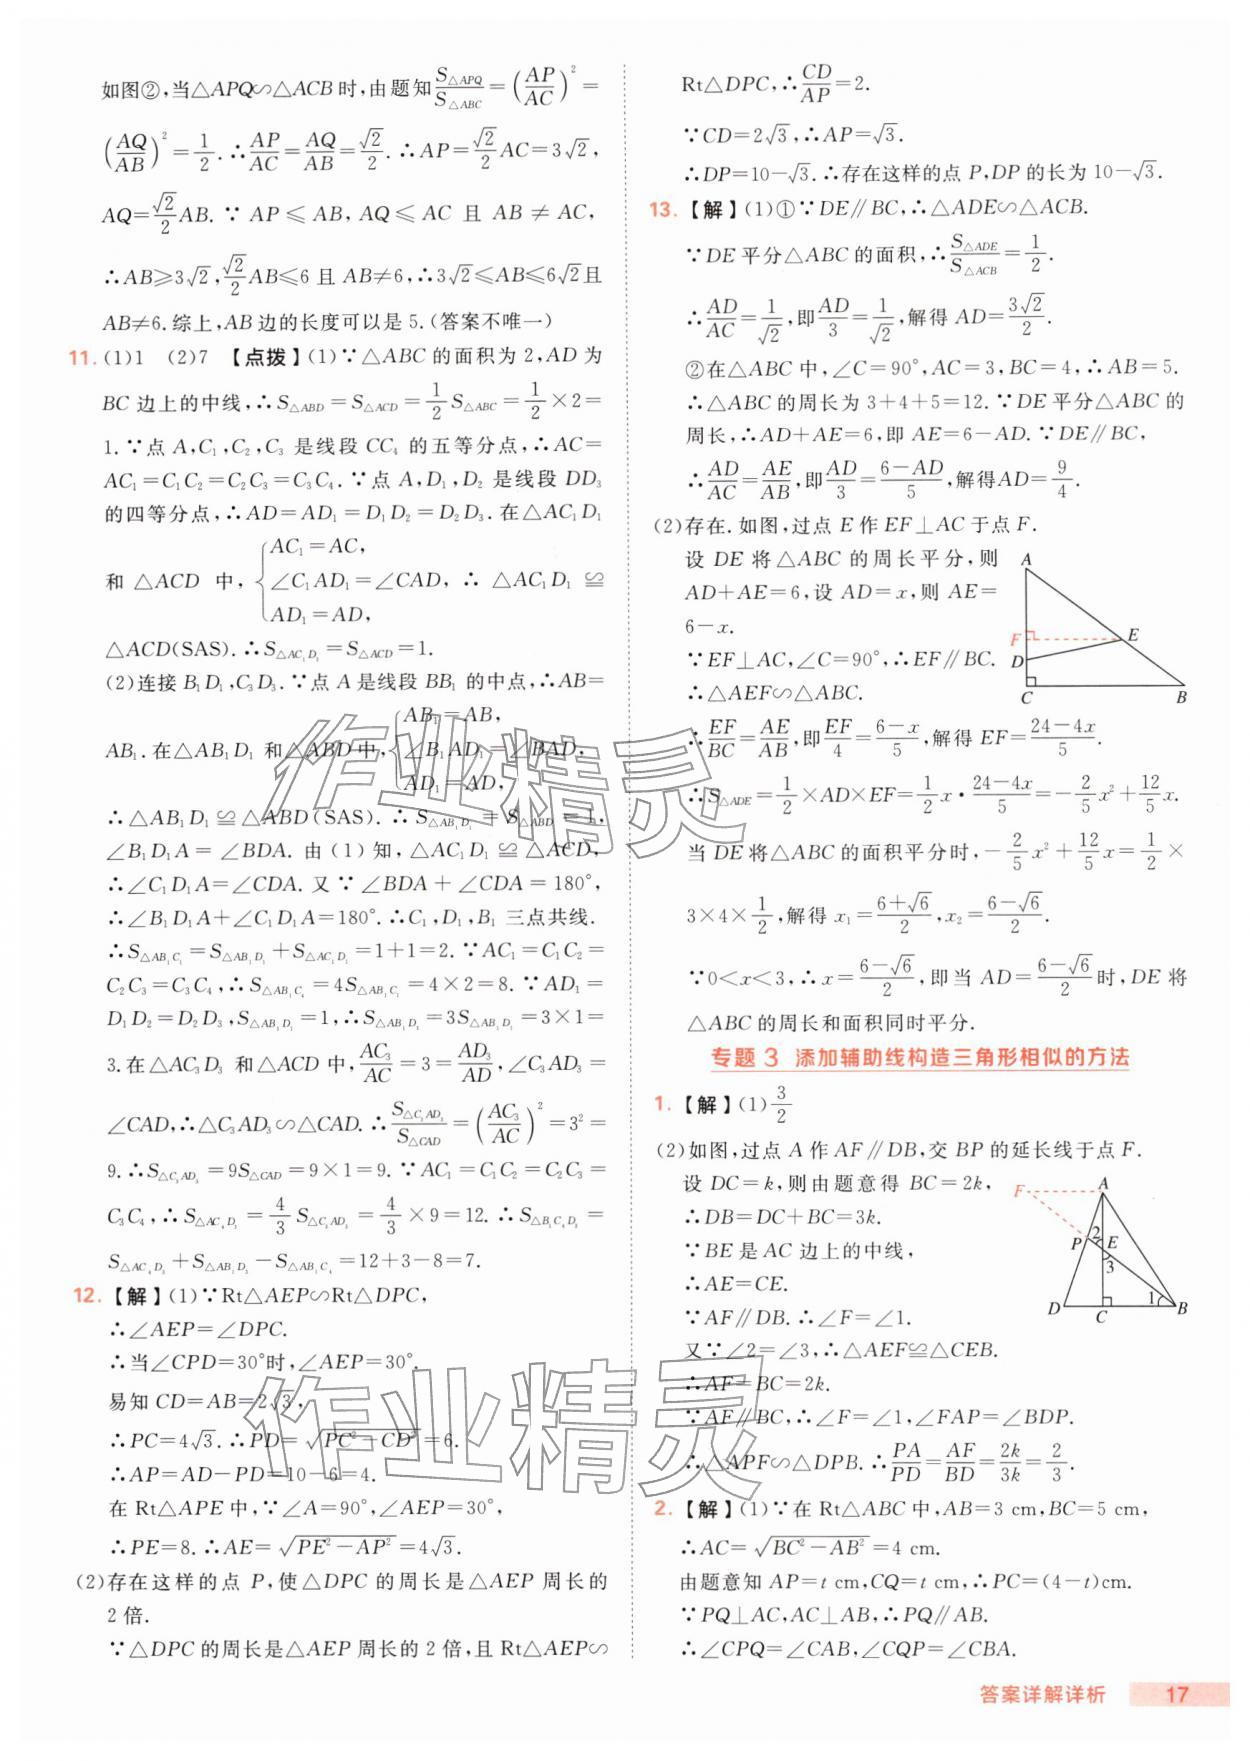 如图②,当△APQ∽△ACB时,由题知S△APQ/S△ABC=(AP/AC)²=
(AQ/AB)²=1/2.∴AP/AC=AQ/AB=√2/2.∴AP=√2/2AC=3√2,
AQ=√2/2AB.∵AP≤AB,AQ≤AC且AB≠AC,
∴AB≥3√2,√2/2AB≤6且AB≠6,∴3√2≤AB≤6√2且
AB≠6.综上,AB边的长度可以是5.(答案不唯一)
11.(1)1 (2)7 【点拨】(1)∵△ABC的面积为2,AD为
BC边上的中线,∴S△ABD=S△ACD=1/2S△ABC=1/2×2=
1.∵点A,C₁,C₂,C₃是线段CC₄的五等分点,∴AC=
AC₁=C₁C₂=C₂C₃=C₃C₄.∵点A,D₁,D₂是线段DD₃
的四等分点,∴AD=AD₁=D₁D₂=D₂D₃.在△AC₁D₁
和△ACD中,{AC₁=AC,
∠C₁AD₁=∠CAD,∴△AC₁D₁≌
AD₁=AD,
△ACD(SAS).∴S△AC₁D₁=S△ACD=1.
(2)连接B₁D₁,C₃D₃.∵点A是线段BB₁的中点,∴AB=
AB₁.在△AB₁D₁和△ABD中,{AB₁=AB,
∠B₁AD₁=∠BAD,
AD₁=AD,
∴△AB₁D₁≌△ABD(SAS).∴S△AB₁D₁=S△ABD=1,
∠B₁D₁A=∠BDA.由(1)知,△AC₁D₁≌△ACD,
∴∠C₁D₁A=∠CDA.又∵∠BDA+∠CDA=180°,
∴∠B₁D₁A+∠C₁D₁A=180°.∴C₁,D₁,B₁三点共线.
∴S△AB₁C₁=S△AB₁D₁+S△AC₁D₁=1+1=2.∵AC₁=C₁C₂=
C₂C₃=C₃C₄,∴S△AB₁C₄=4S△AB₁C₁=4×2=8.∵AD₁=
D₁D₂=D₂D₃,S△AB₁D₁=1,∴S△AB₁D₃=3S△AB₁D₁=3×1=
3.在△AC₃D₃和△ACD中,AC₃/AC=3=AD₃/AD,∠C₃AD₃=
∠CAD,∴△C₃AD₃∽△CAD.∴S△C₃AD₃/S△CAD=(AC₃/AC)²=3²=
9.∴S△C₃AD₃=9S△CAD=9×1=9.∵AC₁=C₁C₂=C₂C₃=
C₃C₄,∴S△AC₄D₃=4/3S△C₃AD₃=4/3×9=12.∴S△B₁C₄D₃=
S△AC₄D₃+S△AB₁D₃-S△AB₁C₄=12+3-8=7.
12.【解】(1)∵Rt△AEP∽Rt△DPC,
∴∠AEP=∠DPC.
∴当∠CPD=30°时,∠AEP=30°.
易知CD=AB=2√3,
∴PC=4√3.∴PD=√(PC²-CD²)=6.
∴AP=AD-PD=10-6=4.
在Rt△APE中,∵∠A=90°,∠AEP=30°,
∴PE=8.∴AE=√(PE²-AP²)=4√3.
(2)存在这样的点P,使△DPC的周长是△AEP周长的
2倍.
∵△DPC的周长是△AEP周长的2倍,且Rt△AEP∽
Rt△DPC,∴CD/AP=2.
∵CD=2√3,∴AP=√3.
∴DP=10-√3.∴存在这样的点P,DP的长为10-√3.
13.【解】(1)①∵DE∥BC,∴△ADE∽△ACB.
∵DE平分△ABC的面积,∴S△ADE/S△ACB=1/2.
∴AD/AC=1/√2,即AD/3=1/√2,解得AD=3√2/2.
②在△ABC中,∠C=90°,AC=3,BC=4,∴AB=5.
∴△ABC的周长为3+4+5=12.∵DE平分△ABC的
周长,∴AD+AE=6,即AE=6-AD.∵DE∥BC,
∴AD/AC=AE/AB,即AD/3=(6-AD)/5,解得AD=9/4.
(2)存在.如图,过点E作EF⊥AC于点F.
设DE将△ABC的周长平分,则
AD+AE=6,设AD=x,则AE=
6-x.
∵EF⊥AC,∠C=90°,∴EF∥BC.
∴△AEF∽△ABC.
A
F
E
D
C
B
∴EF/BC=AE/AB,即EF/4=(6-x)/5,解得EF=(24-4x)/5.
∴S△ADE=1/2×AD×EF=1/2x·(24-4x)/5=-2/5x²+12/5x.
当DE将△ABC的面积平分时,-2/5x²+12/5x=1/2×
3×4×1/2,解得x₁=(6+√6)/2,x₂=(6-√6)/2.
∵0<x<3,∴x=(6-√6)/2,即当AD=(6-√6)/2时,DE将
△ABC的周长和面积同时平分.
专题3 添加辅助线构造三角形相似的方法
1.【解】(1)3/2
(2)如图,过点A作AF∥DB,交BP的延长线于点F.
设DC=k,则由题意得BC=2k,
∴DB=DC+BC=3k.
∵BE是AC边上的中线,
∴AE=CE.
∵AF∥DB,∴∠F=∠1.
又∵∠2=∠3,∴△AEF≌△CEB.
∴AF=BC=2k.
F
A
P
2
E
3
1
D
C
B
∵AF∥BC,∴∠F=∠1,∠FAP=∠BDP.
∴△APF∽△DPB.∴PA/PD=AF/BD=2k/3k=2/3.
2.【解】(1)∵在Rt△ABC中,AB=3 cm,BC=5 cm,
∴AC=√(BC²-AB²)=4 cm.
由题意知AP=t cm,CQ=t cm,∴PC=(4-t)cm.
∵PQ⊥AC,AC⊥AB,∴PQ∥AB.
∴∠CPQ=∠CAB,∠CQP=∠CBA.
答案详解详析 17
作业精灵
作业精灵